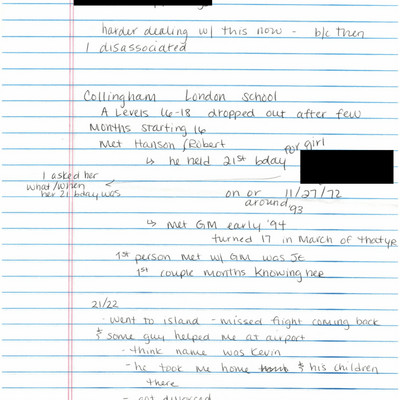 harder dealing w/ this now - b/c then
I disassociated
Collingham London School
A Levels 16-18 dropped out after few
months starting 16
Met Hanson / Robert
for girl
↳ he held 21st bday
I asked her
what/when
her 21 bday was
on or 11/27/72
around '93
↳ met GM early '94
turned 17 in March of that yr
1st person met w/ GM was JE
1st couple months knowing her
21/22
- went to island - missed flight coming back
& some guy helped me at airport
- think name was Kevin
- he took me home & his children
there
- got divorced